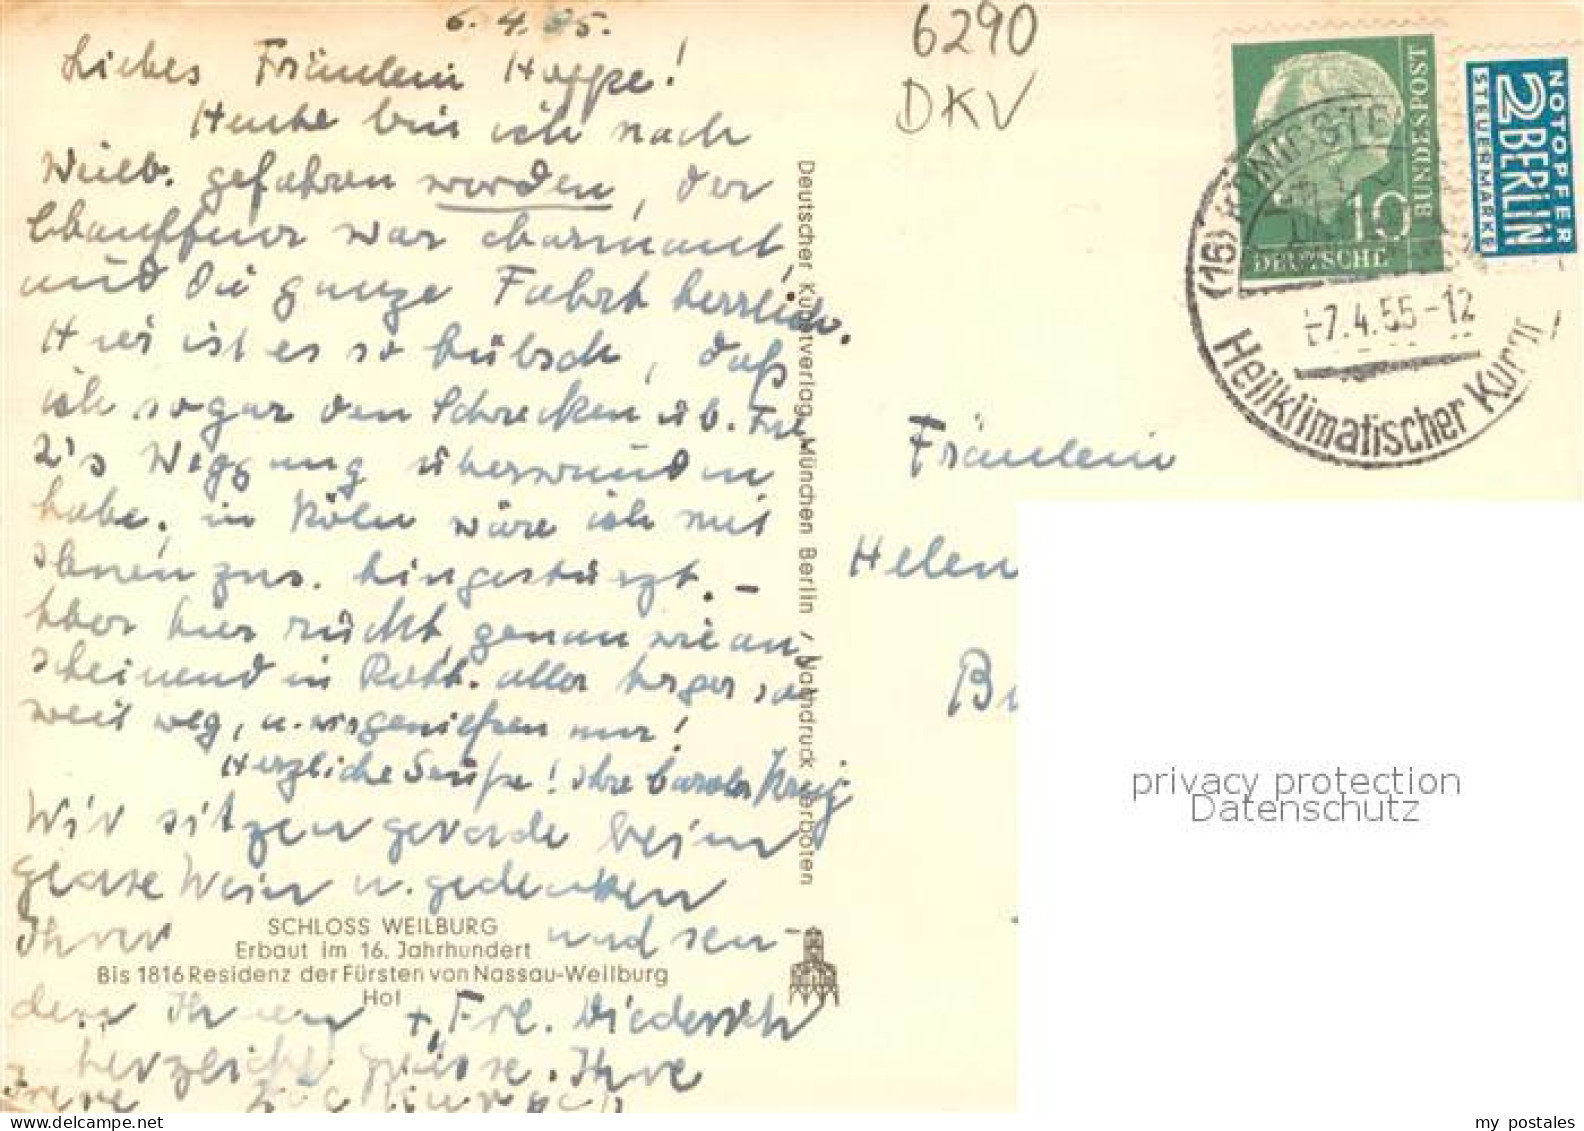 6.4.55.
6290
DKV
Liebes Fräulein Hoppe!
Heute bin ich nach
Weilb. gefahren worden, der
Chauffeur war charmant
und die ganze Fahrt herrlich.
Hier ist es so hübsch, daß
ich sogar den Schrecken üb. Frl
Z's Weggang überwunden
habe, in Köln wäre ich mit
Ihnen zus. hingestürzt. –
Aber hier rückt, genau wie an,
scheinend in aller so
weit weg, u. wir genießen nur!
Herzliche Grüße! Ihre
Wir sitzen gerade beim
Glase Wein u. gedenken
Ihrer und sen-
SCHLOSS WEILBURG
Erbaut im 16. Jahrhundert
Bis 1816 Residenz der Fürsten von Nassau-Weilburg
Hof
den Ihnen + Frl. Diederich
herzliche Grüsse. Ihre
Deutscher Kunstverlag München Berlin / Nachdruck verboten
BUNDESPOST
10
DEUTSCHE
NOTOPFER
2 BERLIN
STEUERMARKE
(16) KÖNIGSTE
-7.4.55-12
Heilklimatischer Kuror
Fräulein
Helen
privacy protection
Datenschutz
my postales